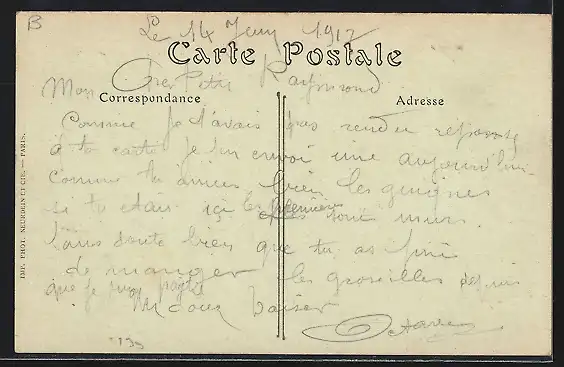 B
Le 14 Juin 1917
Carte Postale
Mon Cher Petit Raymond
Correspondance
Adresse
Comme je t'avais pas rendu réponse
à ta carte je t'en envoi une aujourd'hui
comme tu aimes bien les guignes
si tu étais ici les premières sont mures
sans doute bien que tu as fini
de manger les groseilles depuis
que je suis
doux baiser
Octave
IMP. PHOT. NEURDEIN ET CIE. — PARIS.